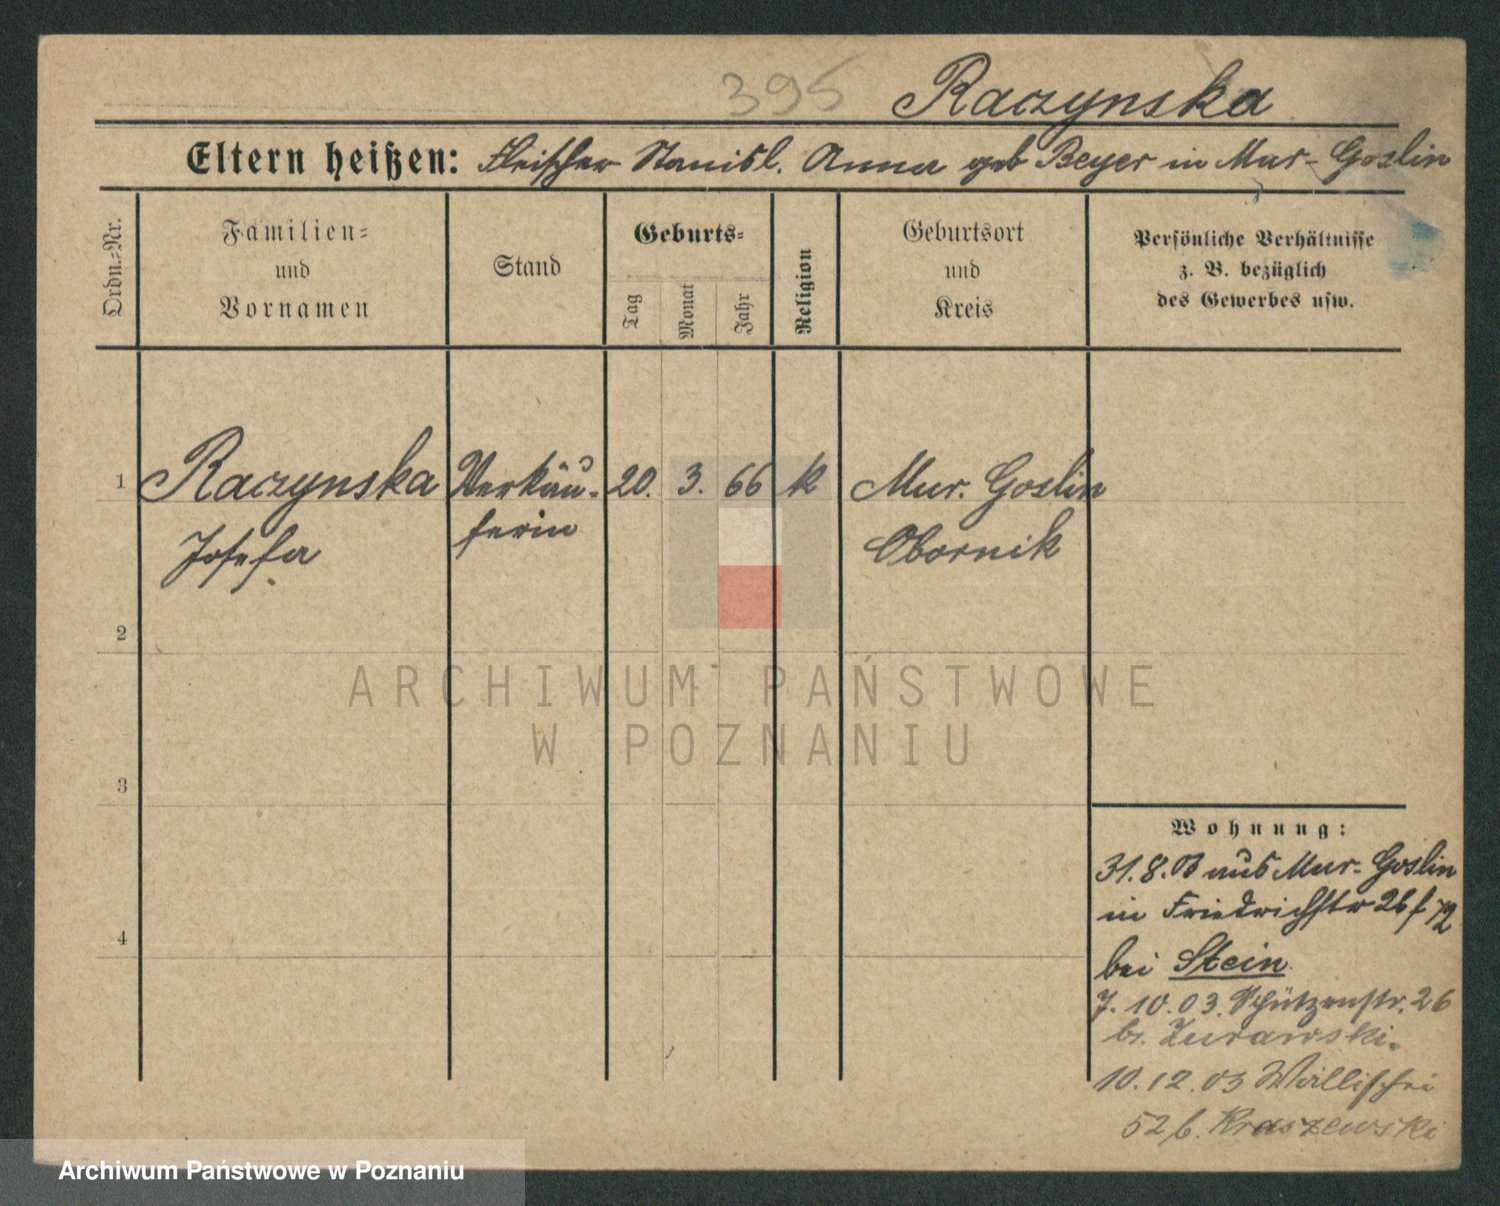 395 Raczynska
Eltern heißen: Fleischer Stanisl. Anna geb Beyer in Mur-Goslin
Ordn.-Nr.
Familien-
und
Vornamen
Stand
Geburts-
Tag
Monat
Jahr
Religion
Geburtsort
und
Kreis
Persönliche Verhältnisse
z. B. bezüglich
des Gewerbes usw.
1 Raczynska Verkäu- 20. 3. 66 k Mur. Goslin
Josefa ferin Obornik
2
3
4
Wohnung:
31.8.03 aus Mur-Goslin
in Friedrichstr 26
bei Stein
7.10.03. Schützenstr. 26
b. Zurawski.
10.12.03 Wallischei
52 b. Kraszewski
ARCHIWUM PAŃSTWOWE
W POZNANIU
Archiwum Państwowe w Poznaniu